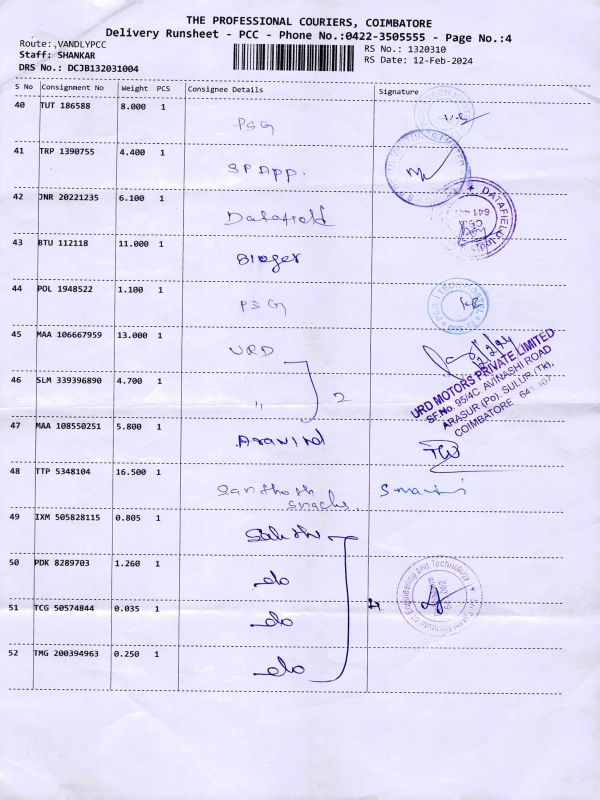 THE PROFESSIONAL COURIERS, COIMBATORE
Delivery Runsheet - PCC - Phone No.:0422-3505555 - Page No.:4
Route:,VANDLYPCC
RS No.: 1320310
Staff: SHANKAR
RS Date: 12-Feb-2024
DRS No.: DCJB132031004
S No Consignment No Weight PCS Consignee Details Signature
40 TUT 186588 8.000 1 PSG
41 TRP 1390755 4.400 1 SP App.
42 JNR 20221235 6.100 1 Datafield
DATAFIELD
43 BTU 112118 11.000 1
44 POL 1948522 1.100 1 PSG
45 MAA 106667959 13.000 1 URD
12/2/24
URD MOTORS PRIVATE LIMITED
SF.No. 95/4C, AVINASHI ROAD
ARASUR (Po), SULUR (Tk),
COIMBATORE 641 407
46 SLM 339396890 4.700 1 " 2
47 MAA 108550251 5.800 1 Aravind
48 TTP 5348104 16.500 1 Santhosh
snacks.
49 IXM 505828115 0.805 1
50 PDK 8289703 1.260 1 do
51 TCG 50574844 0.035 1 do 4
Institute of Engineering and Technology
52 TMG 200394963 0.250 1 do